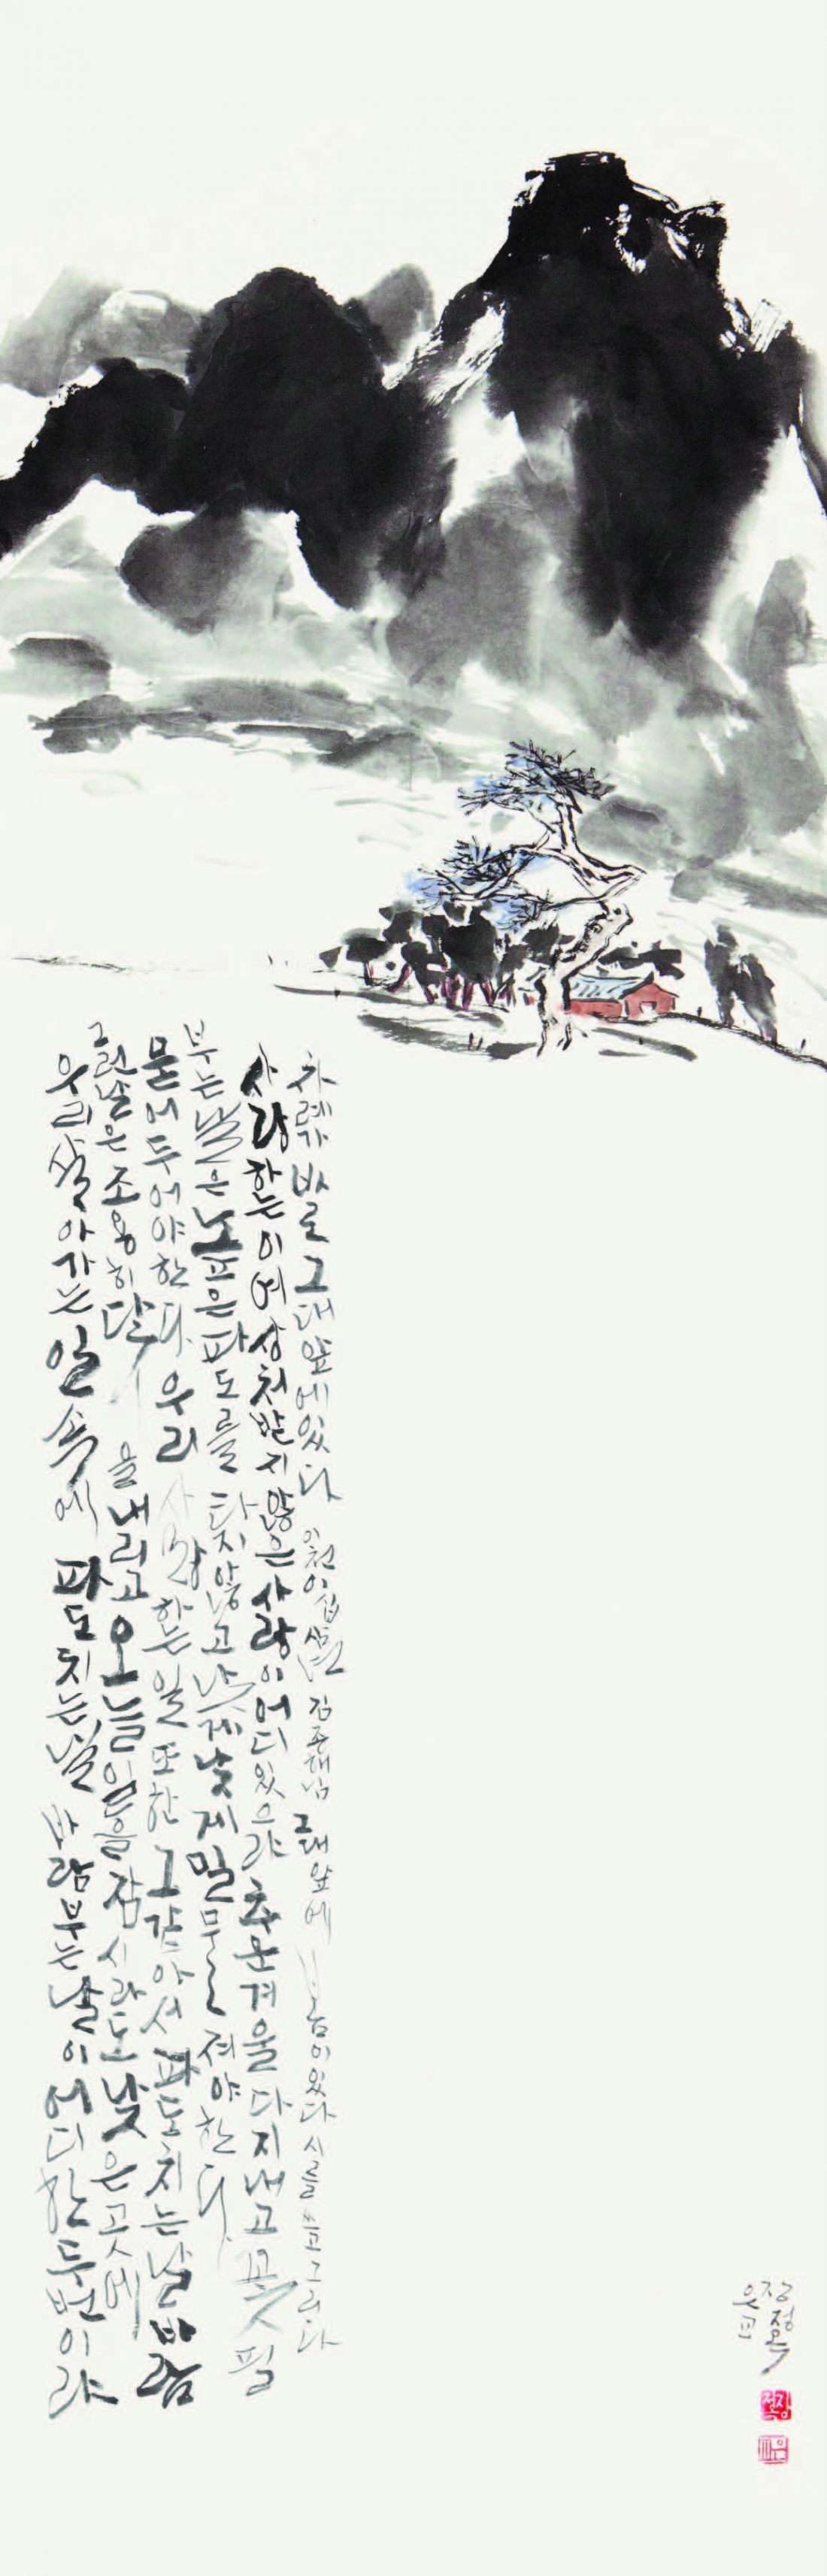 우리 살아가는 일 속에 파도치는 날 바람부는 날이 어디 한두번이랴
그런날은 조용히 닻을 내리고 오늘 일을 잠시라도 낮은 곳에
묻어두어야 한다 우리 사랑하는 일 또한 그같아서 파도치는 날 바람
부는 날은 높은 파도를 타지않고 낮게 낮게 밀물져야 한다
사랑하는 이여 상처받지 않은 사랑이 어디 있으랴 추운겨울 다 지내고 꽃필
차례가 바로 그대 앞에 있다 이천이십삼년 김종해님 그대 앞에 봄이 있다 시를 쓰고 그리다
은고
장정옥